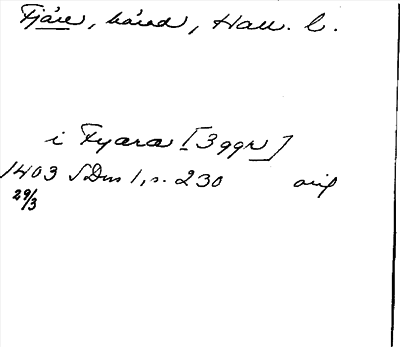 Fjäre, härad, Hall. l.
i Fyara [3 ggr]
1403 SDns 1, s. 230 orig
29/3